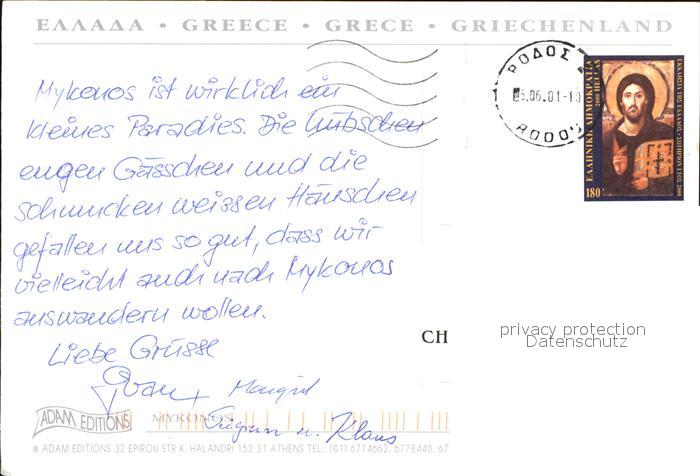 ΕΛΛΑΔΑ • GREECE • GRECE • GRIECHENLAND
Mykonos ist wirklich ein
kleines Paradies. Die hübschen
engen Gässchen und die
schmucken weissen Häuschen
gefallen uns so gut, dass wir
vielleicht auch nach Mykonos
auswandern wollen.
Liebe Grüsse
Margrit
u. Klaus
ΡΟΔΟΣ
.06.01-1
RODOS
ΕΛΛΗΝΙΚΗ ΔΗΜΟΚΡΑΤΙΑ
2000 HELLAS
180
CH
privacy protection
Datenschutz
ADAM EDITIONS
MYKONOS
® ADAM EDITIONS 32 EPIROU STR K. HALANDRI 152 31 ATHENS TEL.: (01) 6774662, 6778440, 67